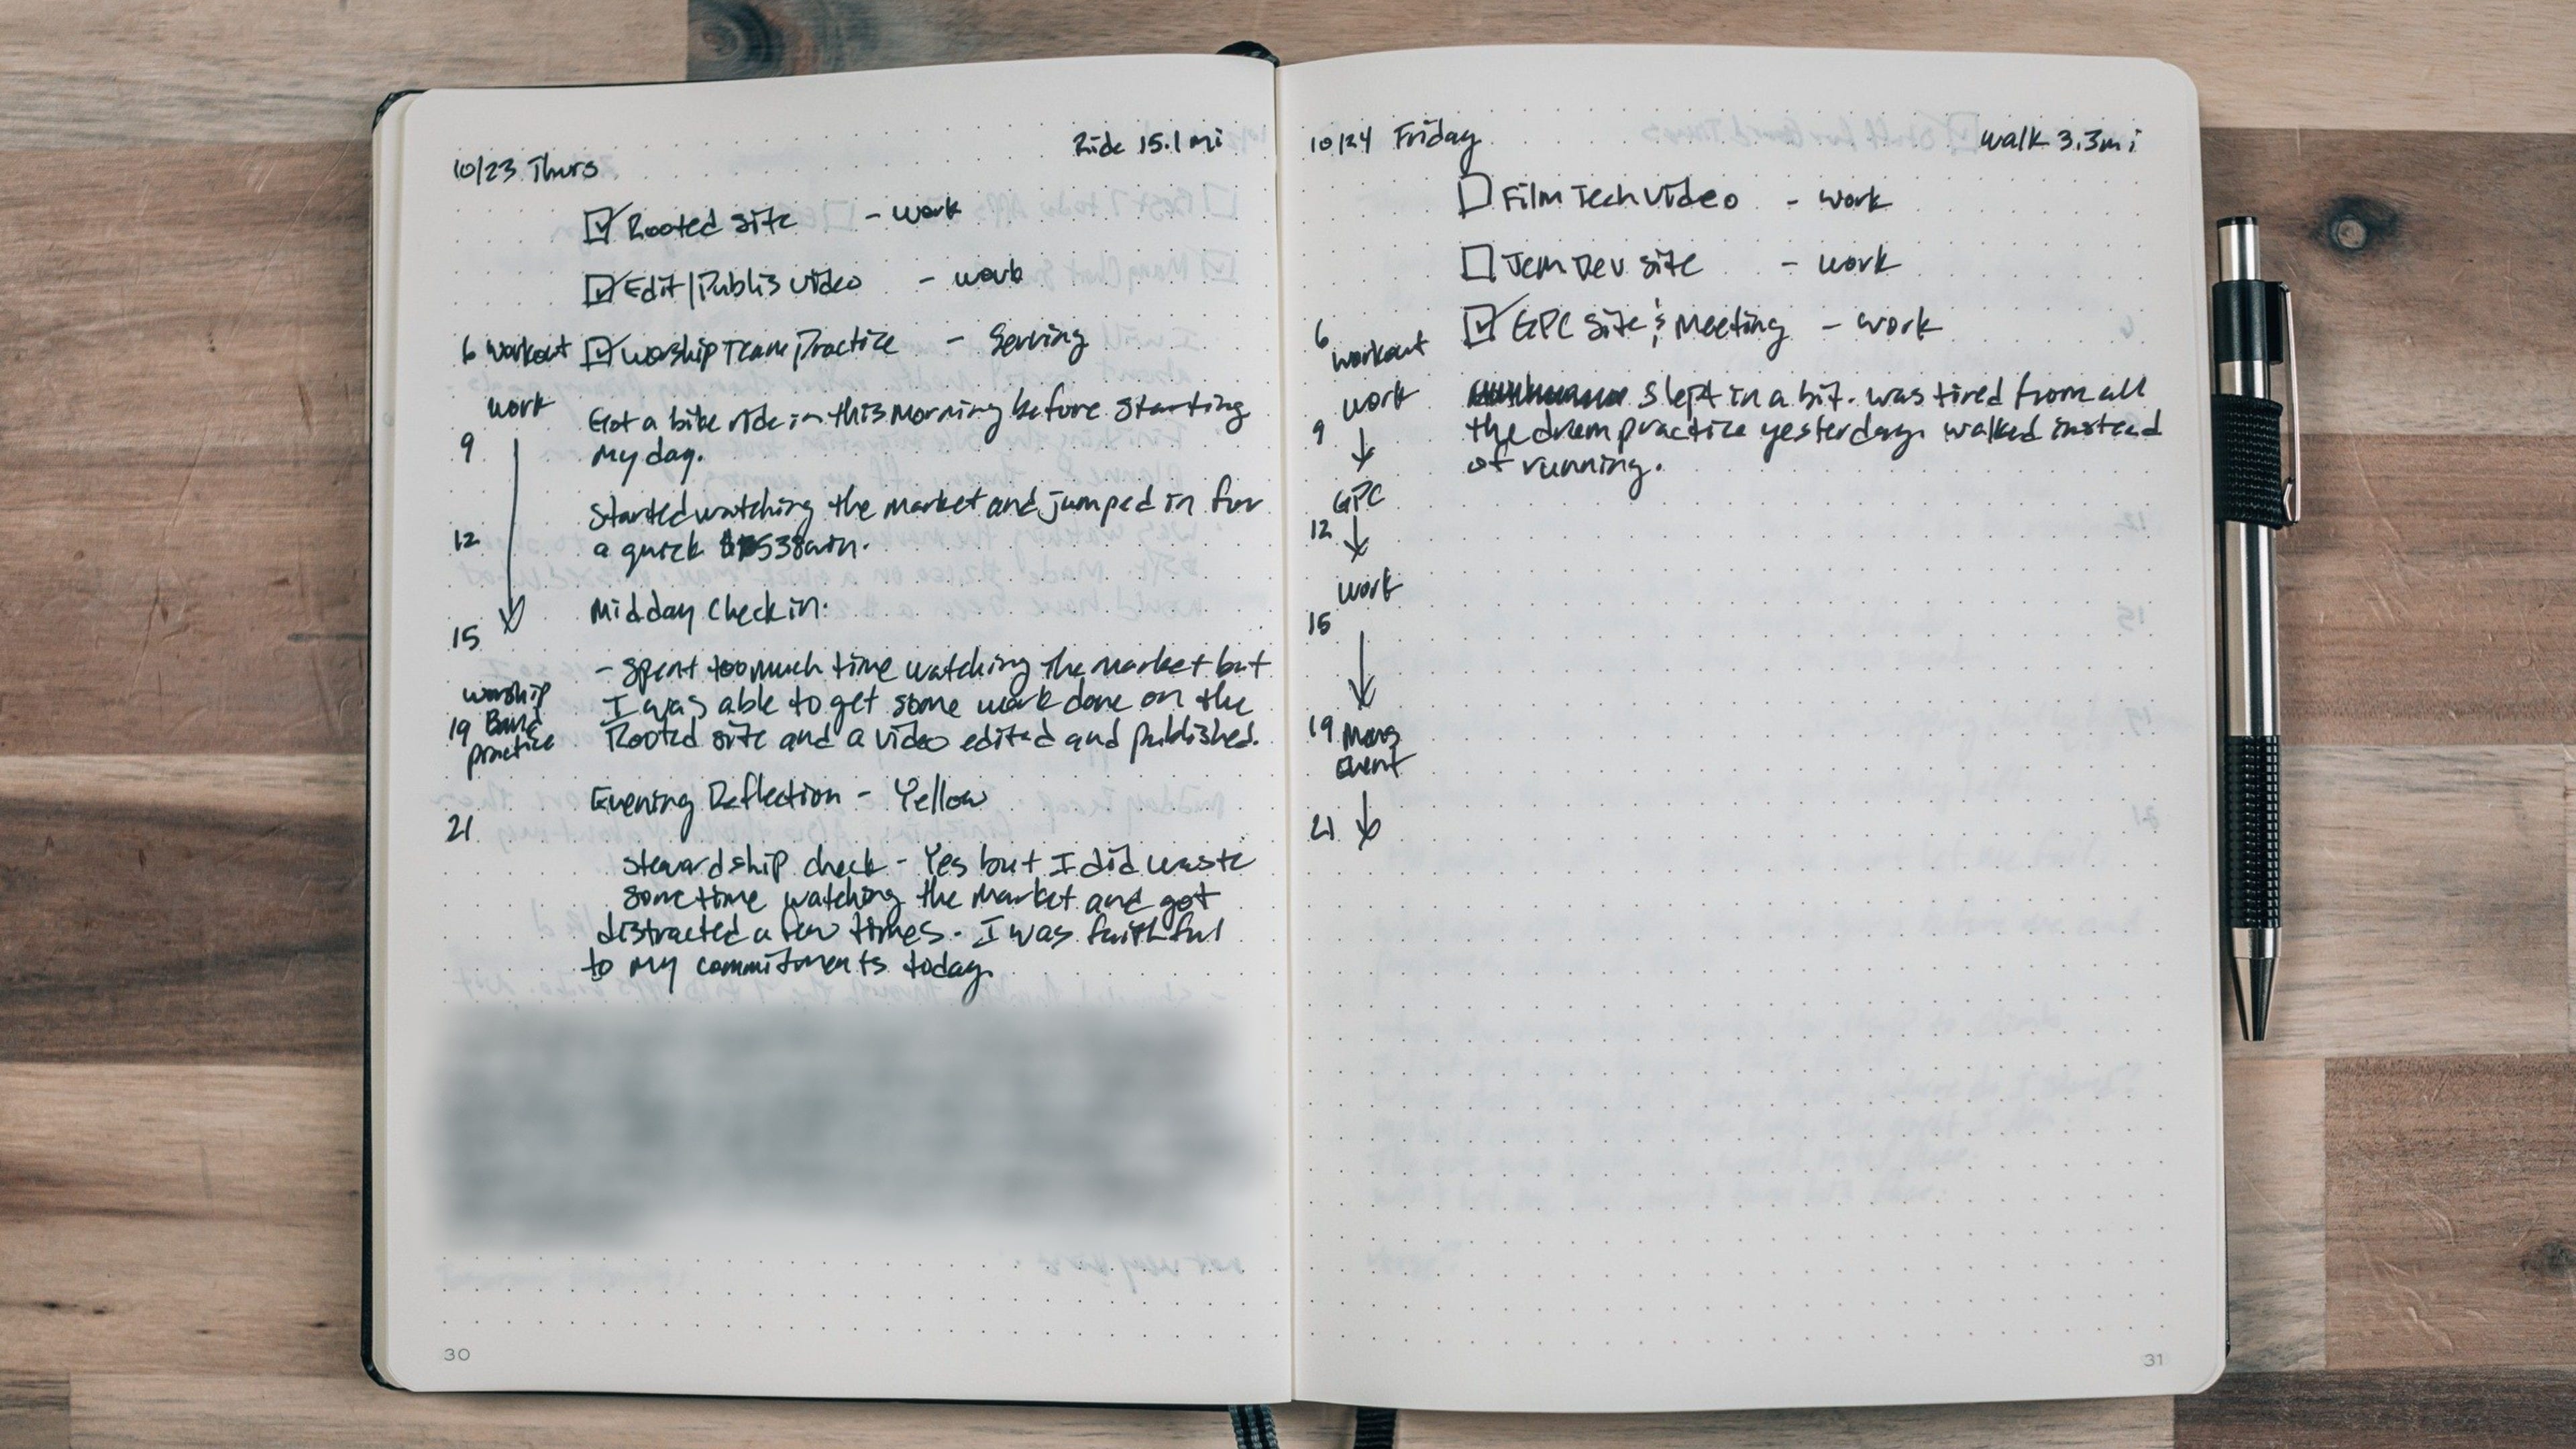 10/23 Thurs
Ride 15.1 mi
Rooted site - work
Edit/Publis video - work
6 workout
Worship Team Practice - Serving
work
Got a bike ride in this morning before starting
9
my day.
Started watching the market and jumped in for
12
a quick
Midday Check in:
15
- Spent too much time watching the market but
worship
I was able to get some work done on the
19 Band
Rooted site and a video edited and published.
practice
Evening Reflection - Yellow
21
Stewardship check - Yes but I did waste
some time watching the market and got
distracted a few times. I was faithful
to my commitments today.
30
10/24 Friday
walk 3.3mi
Film Tech Video - work
Jem Dev site - work
6
GPC site & Meeting - work
workout
work
slept in a bit. was tired from all
9
the drum practice yesterday. walked instead
of running.
GPC
12
work
15
19
Event
21
31